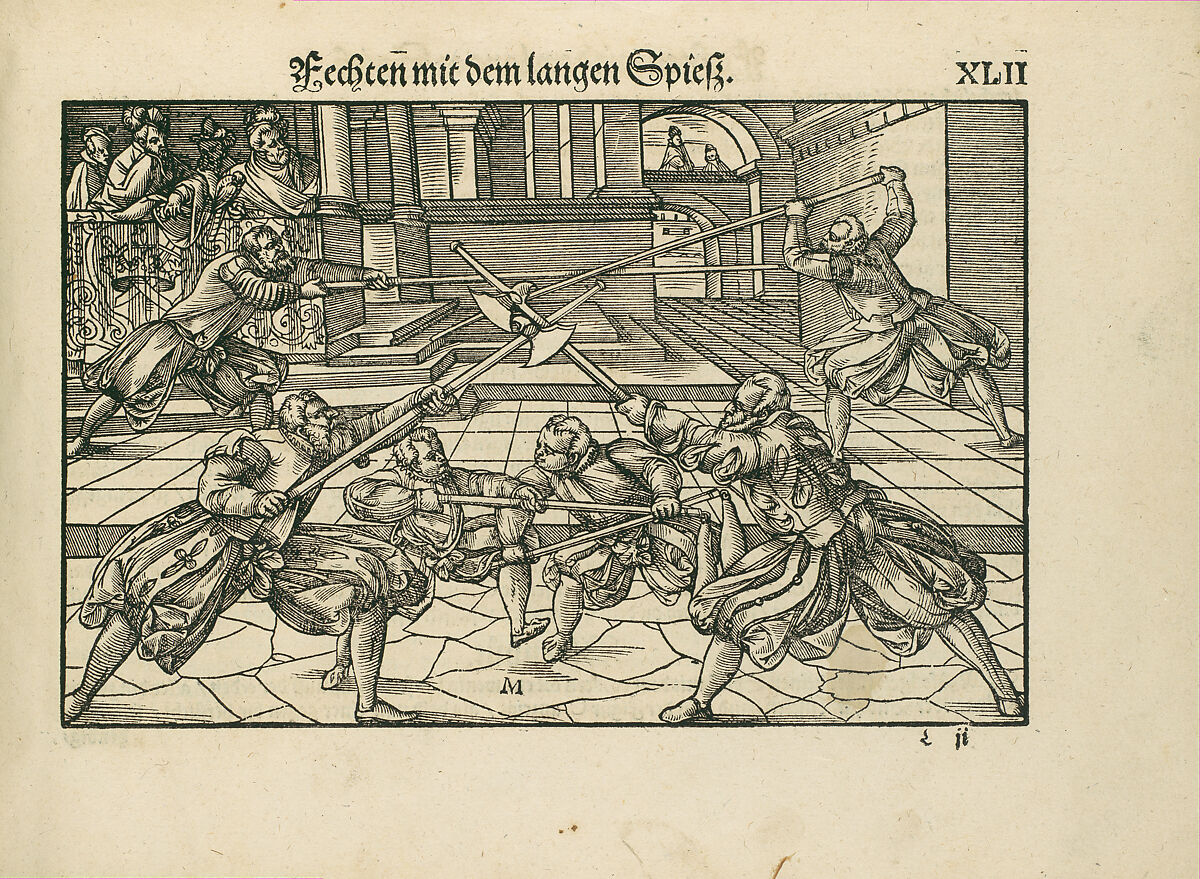 Fechtenn̄ mit dem langen Spieſz.
XLII
M
L ij